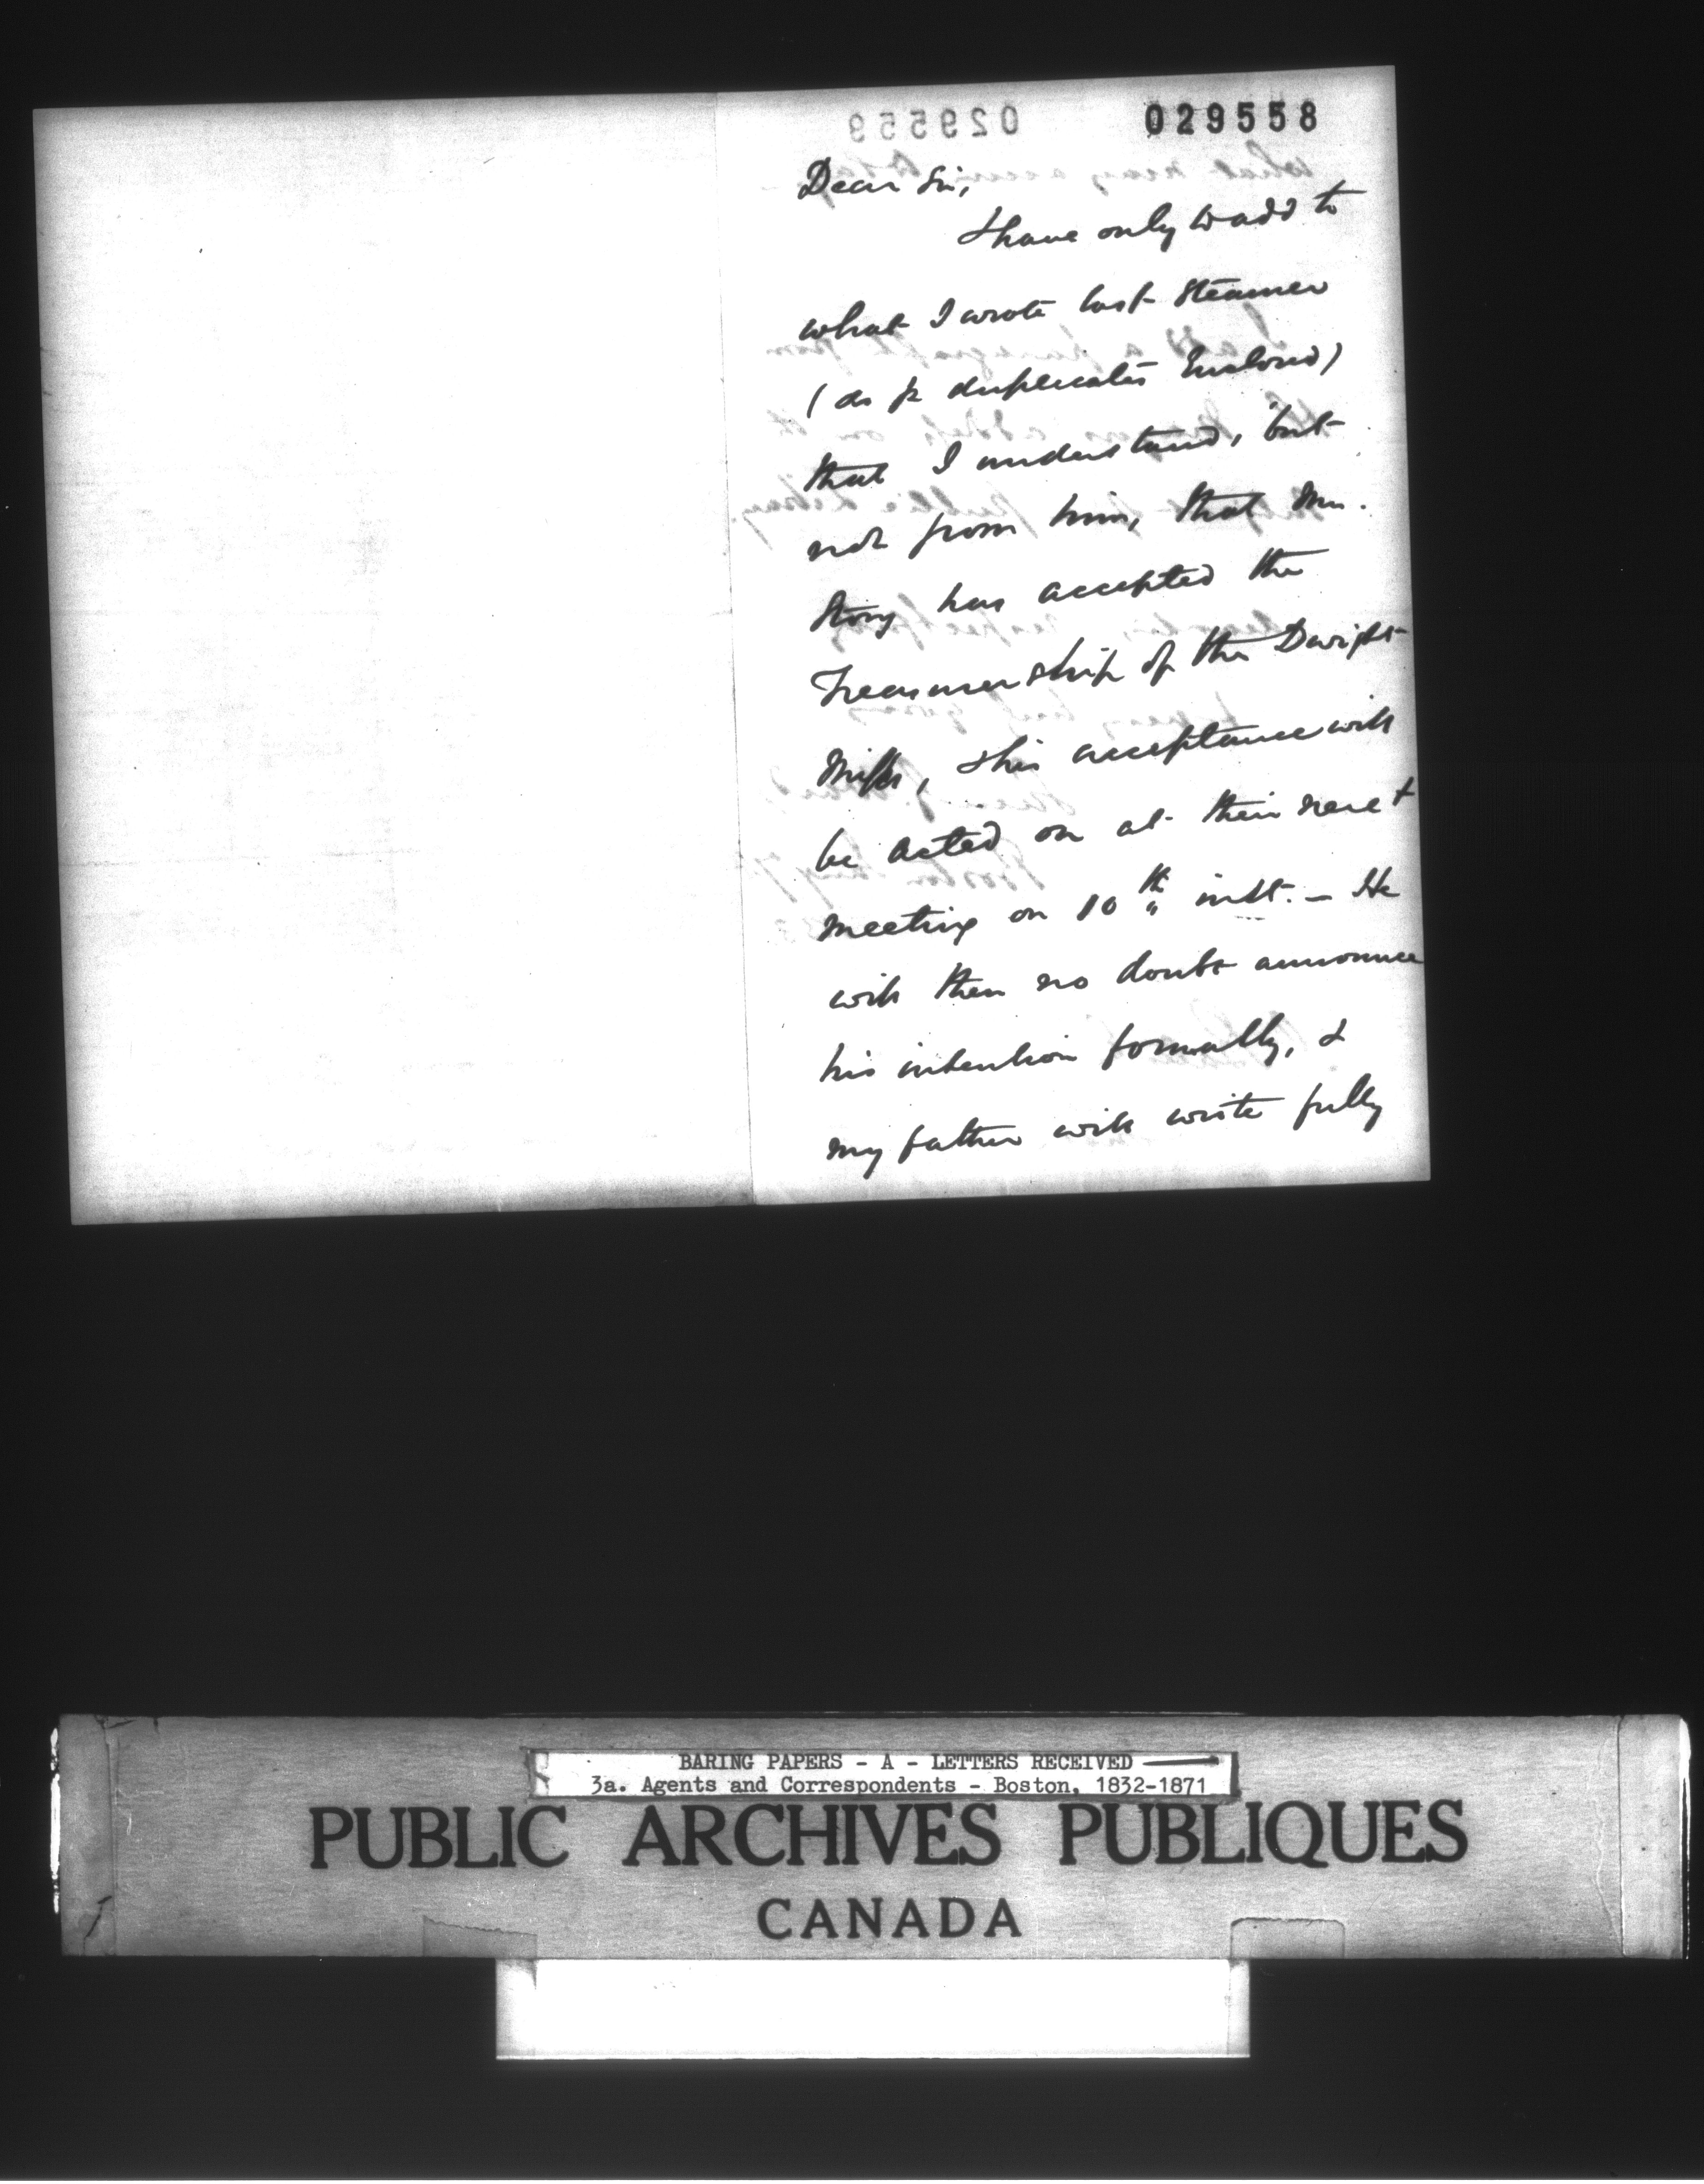 029558
Dear Sir,
I have only to add to
what I wrote last steamer
(as p duplicates Enclosed)
that I understand, but
not from him, that Mr.
Story has accepted the
Treasurership of the Dwight
Mills, & his acceptance will
be acted on at their next
meeting on 10th inst. — He
will then no doubt announce
his intention formally, &
my father will write fully
BARING PAPERS - A - LETTERS RECEIVED
3a. Agents and Correspondents - Boston, 1832-1871
PUBLIC ARCHIVES PUBLIQUES
CANADA